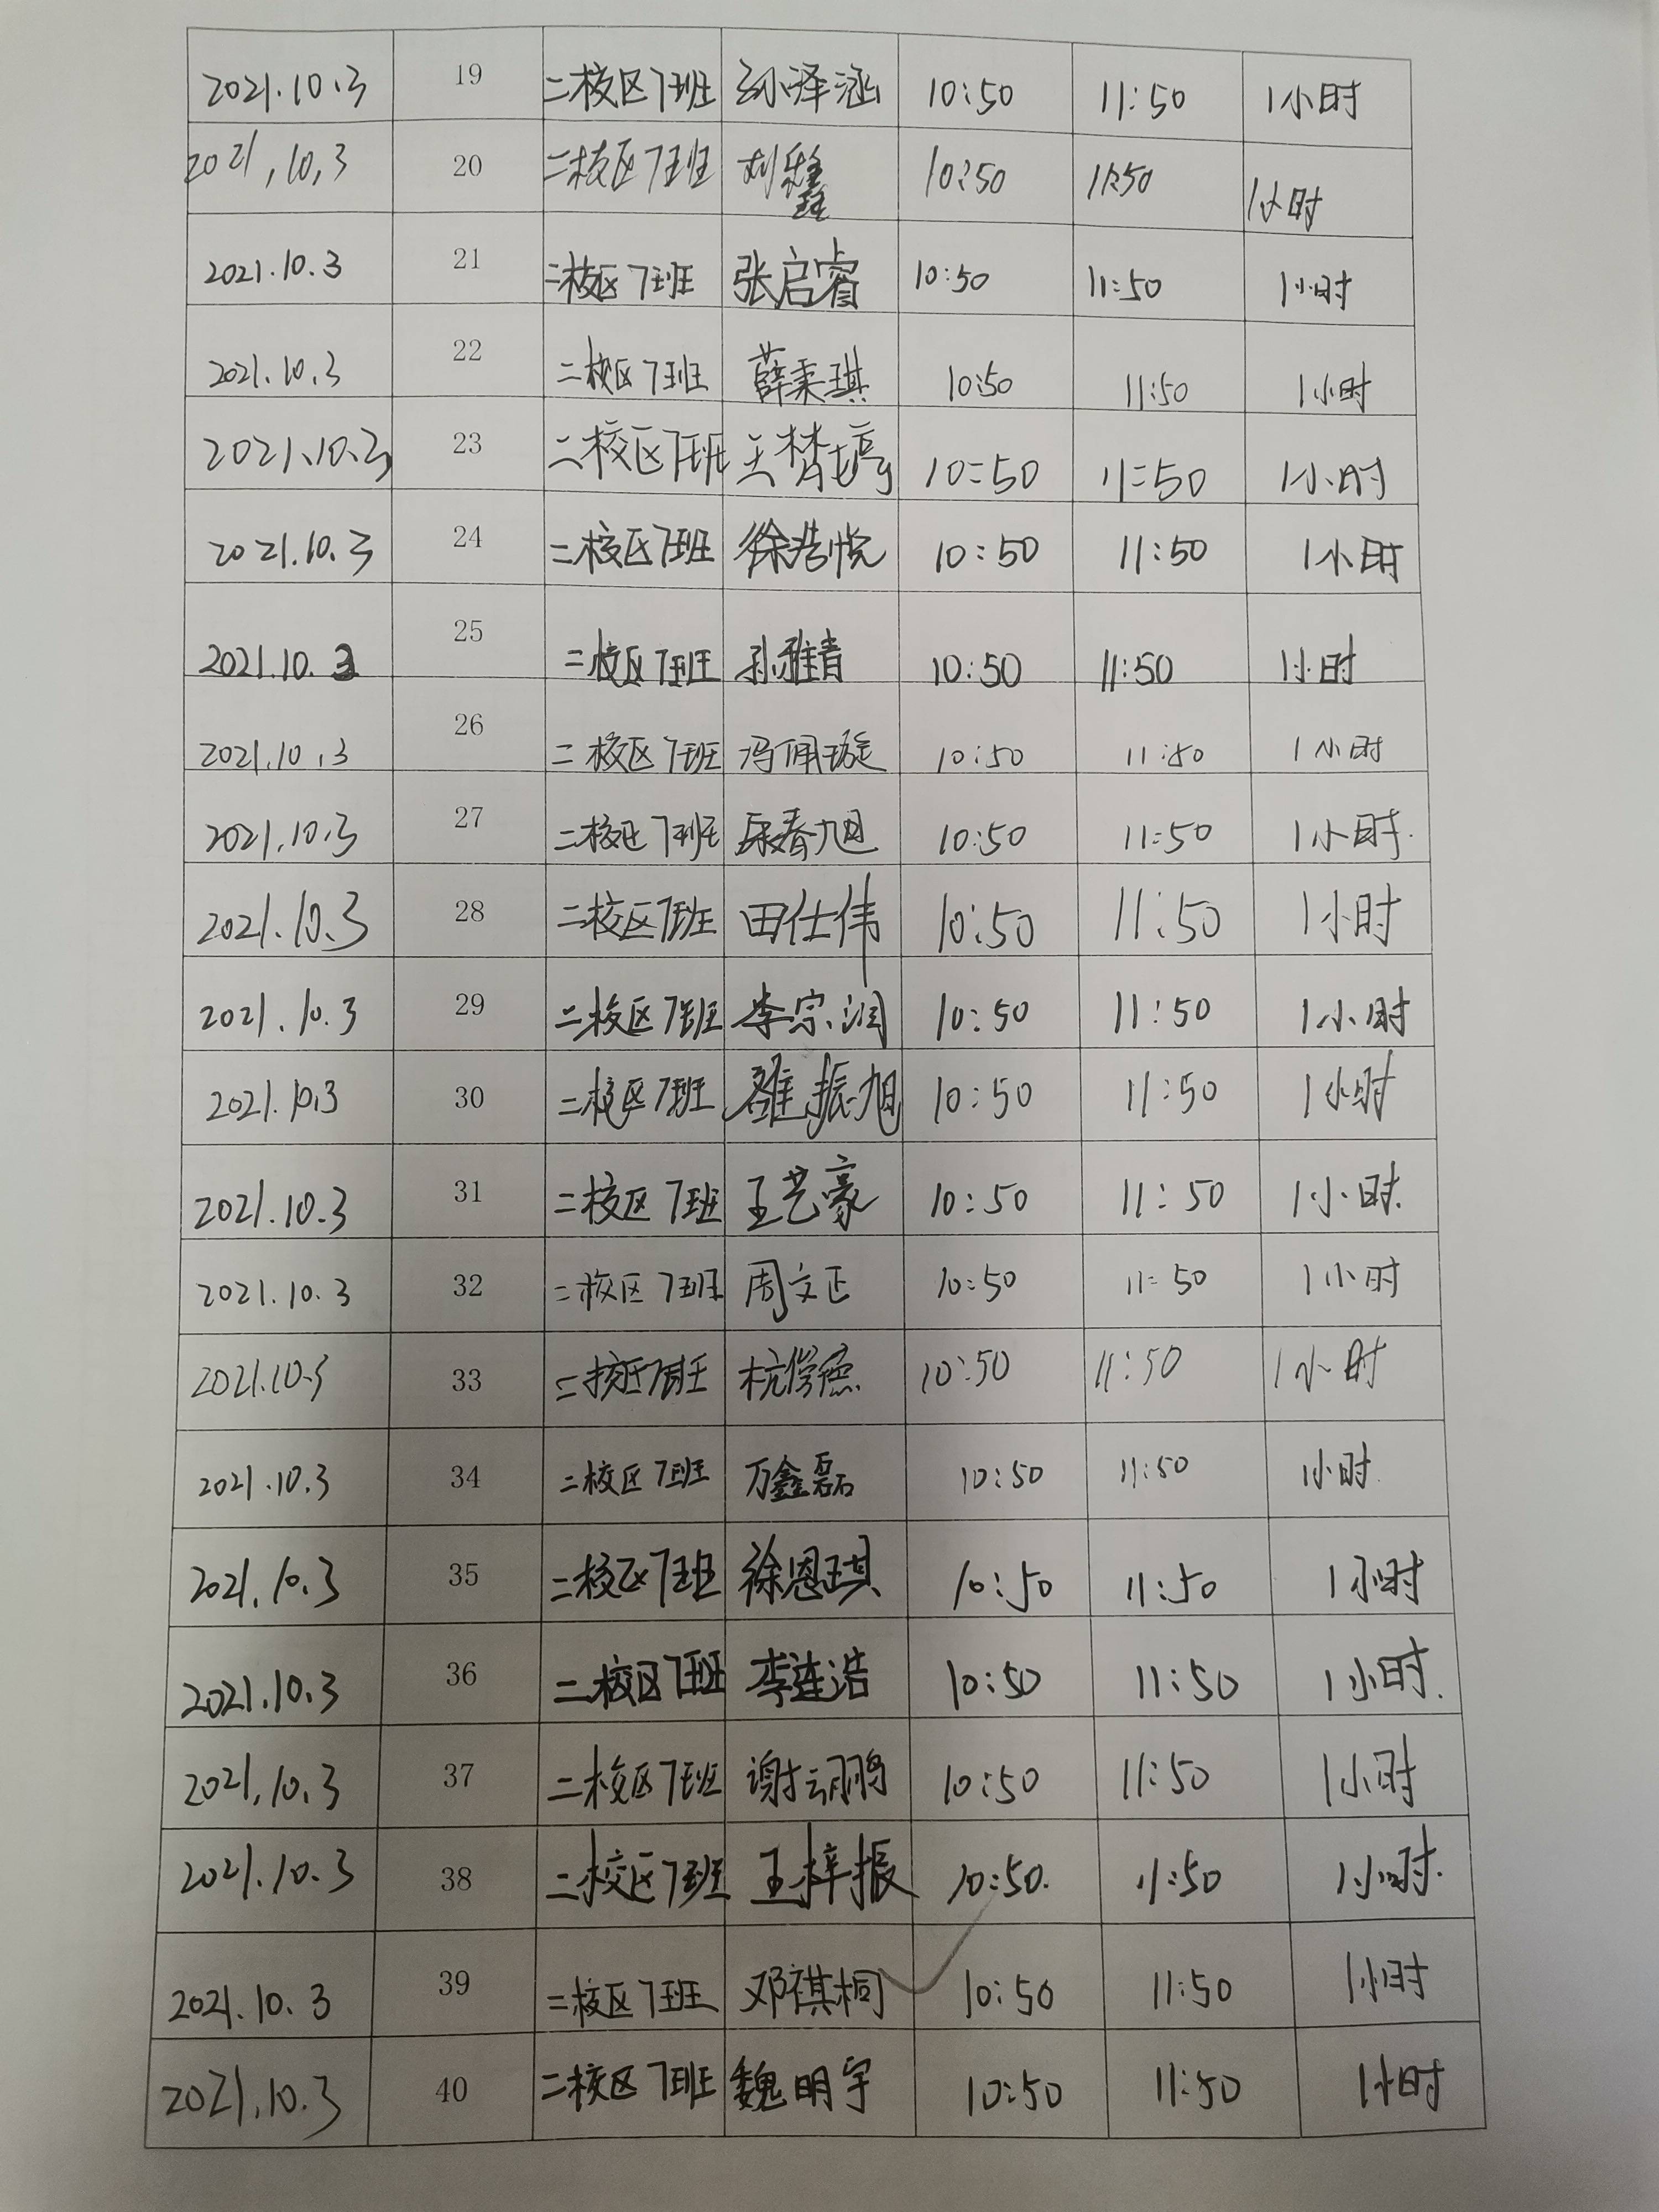 2021.10.3 19 二校区7班 孙泽涵 10:50 11:50 1小时
2021.10.3 20 二校区7班 刘鑫 10:50 11:50 1小时
2021.10.3 21 二校区7班 张启睿 10:50 11:50 1小时
2021.10.3 22 二校区7班 薛柔琪 10:50 11:50 1小时
2021.10.3 23 二校区7班 王梦婷 10:50 11:50 1小时
2021.10.3 24 二校区7班 徐浩悦 10:50 11:50 1小时
2021.10.3 25 二校区7班 孙雅青 10:50 11:50 1小时
2021.10.3 26 二校区7班 冯佩璇 10:50 11:50 1小时
2021.10.3 27 二校区7班 10:50 11:50 1小时
2021.10.3 28 二校区7班 田仕伟 10:50 11:50 1小时
2021.10.3 29 二校区7班 李宗润 10:50 11:50 1小时
2021.10.3 30 二校区7班 10:50 11:50 1小时
2021.10.3 31 二校区7班 王艺豪 10:50 11:50 1小时
2021.10.3 32 二校区7班 周文正 10:50 11:50 1小时
2021.10.3 33 二校区7班 10:50 11:50 1小时
2021.10.3 34 二校区7班 万鑫磊 10:50 11:50 1小时
2021.10.3 35 二校区7班 徐恩琪 10:50 11:50 1小时
2021.10.3 36 二校区7班 李连浩 10:50 11:50 1小时
2021.10.3 37 二校区7班 谢云鹏 10:50 11:50 1小时
2021.10.3 38 二校区7班 王梓振 10:50 11:50 1小时
2021.10.3 39 二校区7班 邓祺桐 10:50 11:50 1小时
2021.10.3 40 二校区7班 魏明宇 10:50 11:50 1小时